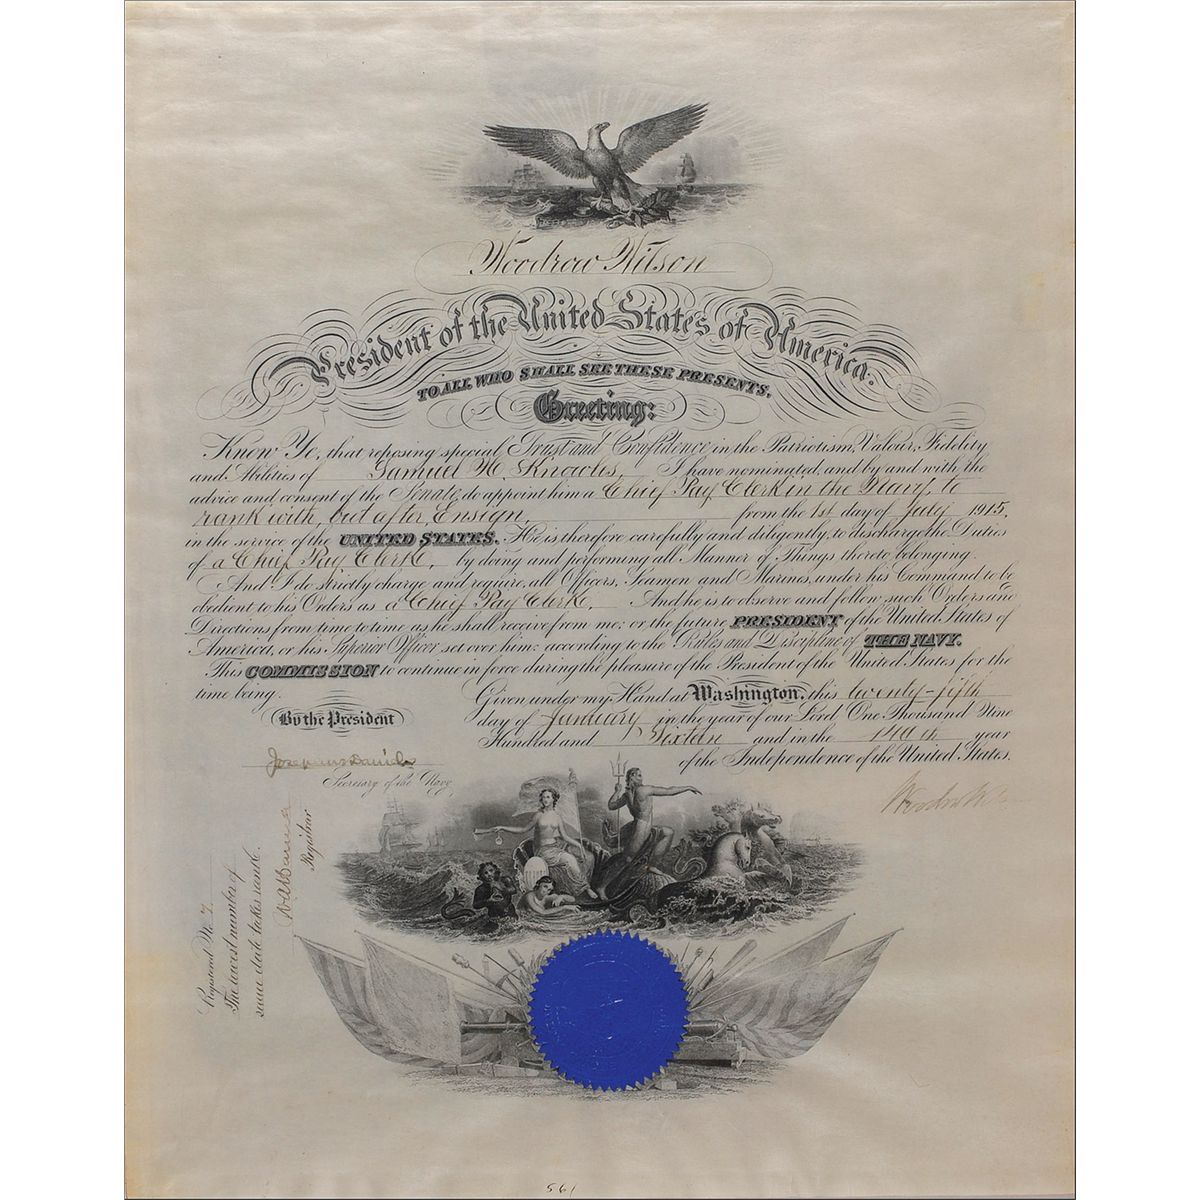 Woodrow Wilson
President of the United States of America.
TO ALL WHO SHALL SEE THESE PRESENTS,
Greeting:
Know Ye, that reposing special Trust and Confidence in the Patriotism, Valour, Fidelity
and Abilities of Samuel H. Knowles, I have nominated, and by and with the
advice and consent of the Senate, do appoint him a Chief Pay Clerk in the Navy, to
rank with, but after, Ensign, from the 1st day of July 1915,
in the service of the UNITED STATES. He is therefore carefully and diligently, to discharge the Duties
of a Chief Pay Clerk, by doing and performing all Manner of Things thereto belonging.
And I do strictly charge and require, all Officers, Seamen and Marines, under his Command to be
obedient to his Orders as a Chief Pay Clerk. And he is to observe and follow such Orders and
Directions from time to time as he shall receive from me; or the future PRESIDENT of the United States of
America, or his Superior Officer set over him; according to the Rules and Discipline of THE NAVY.
This COMMISSION to continue in force during the pleasure of the President of the United States for the
time being.
Given under my Hand at Washington, this twenty-fifth
day of January in the year of our Lord One Thousand Nine
Hundred and Sixteen and in the 140th year
of the Independence of the United States.
By the President
Woodrow Wilson
Josephus Daniels
Secretary of the Navy
Registrar
Registered No. 7.
The lowest number of
same date takes rank.
561